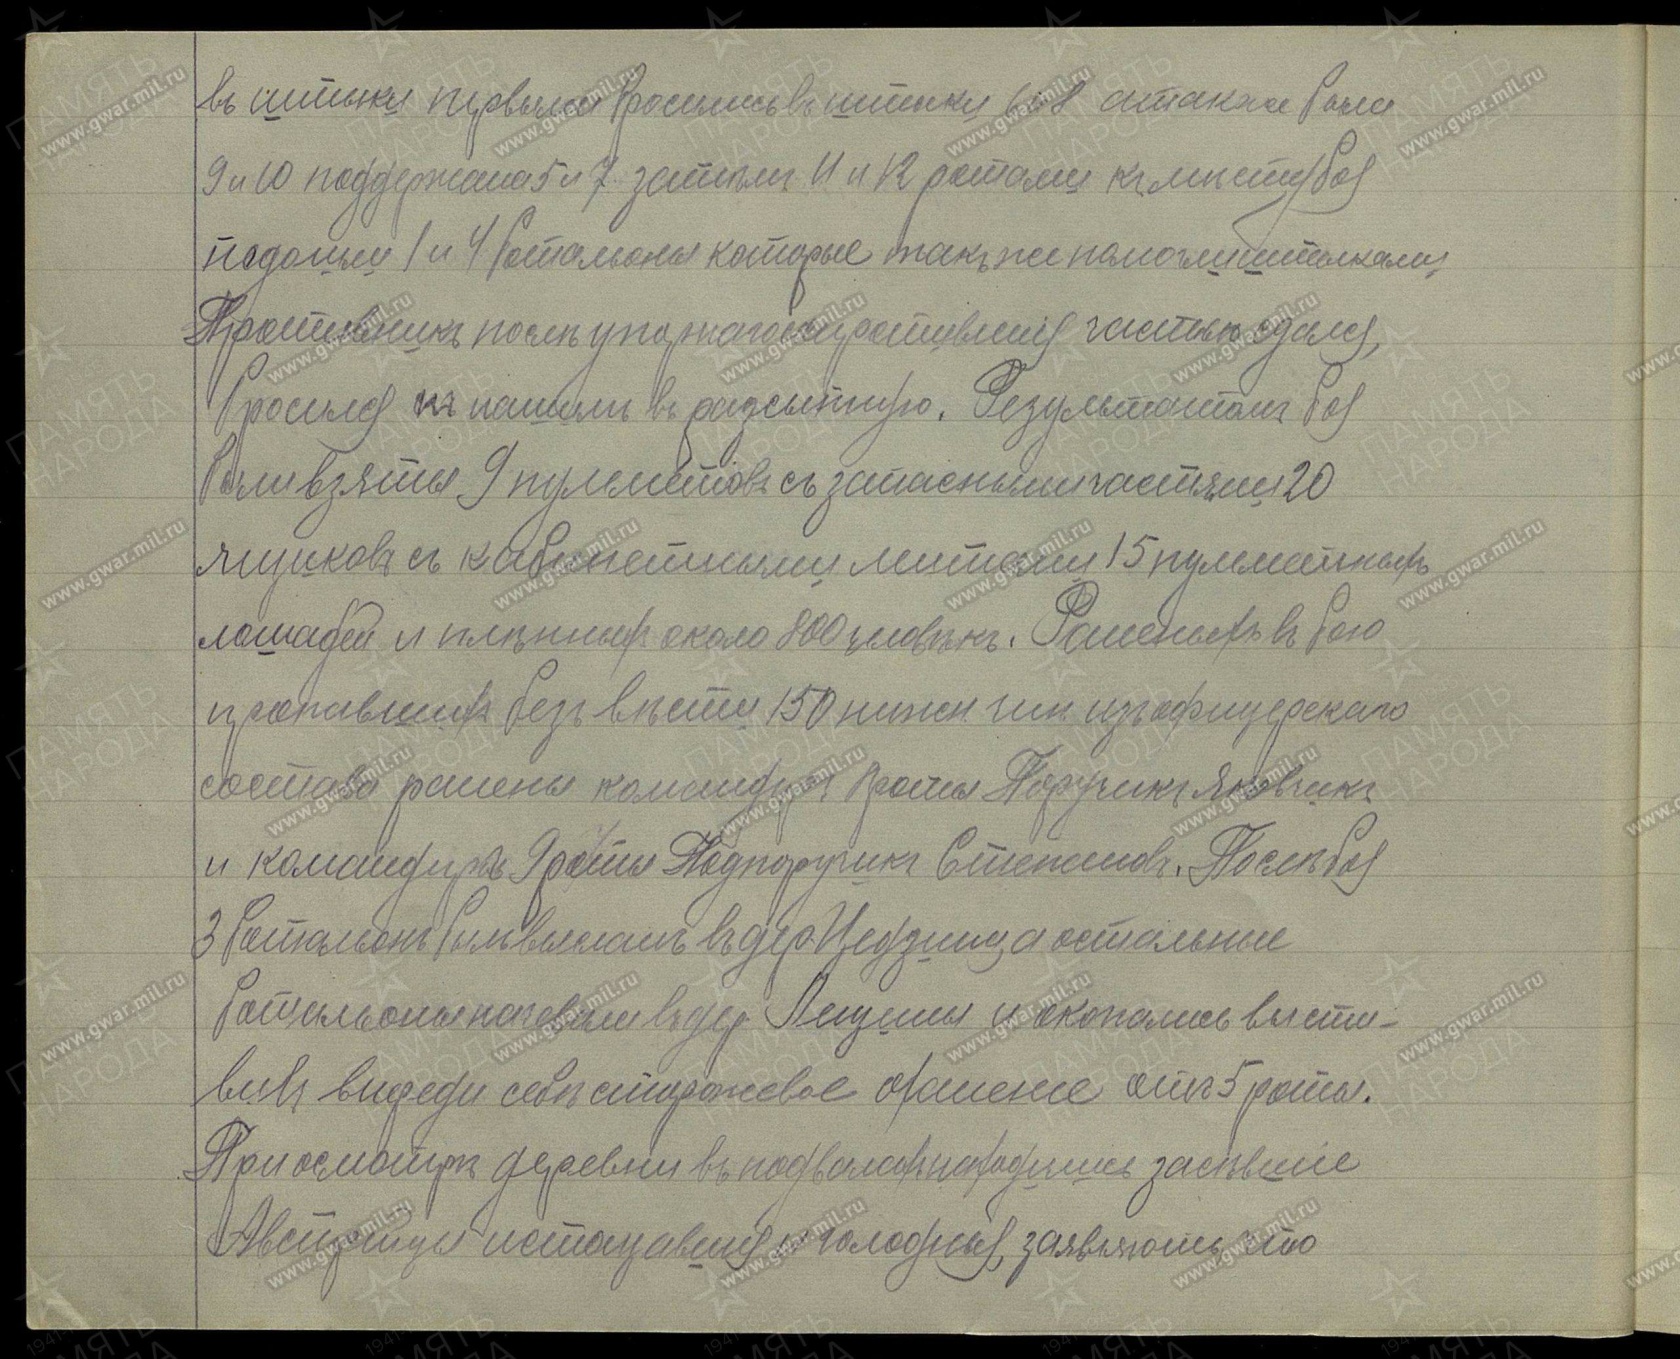 въ штыки первыми бросились въ штыки 6 и 8 атака же была
9 и 10 поддержана 5 и 7 затѣмъ 11 и 12 ротами къ мѣсту боя
подошли 1 и 4 баталiоны которые также помогли штыками,
Противникъ послѣ упорнаго сопротивленiя частью сдался,
бросился къ нашимъ въ разсыпную. Результатомъ боя
были взяты 9 пулеметовъ съ запасными частями 20
ящиковъ съ набитыми лентами 15 пулеметныхъ
лошадей и плѣнныхъ около 800 человѣкъ. Раненыхъ въ бою
пропавшихъ безъ вѣсти 150 нижн чин изъ офицерскаго
состава ранены командиръ роты Поручикъ Яковчикъ
и командиръ 9 роты Подпоручикъ Степановъ. Послѣ боя
3 баталiонъ былъ высланъ въ дер. а остальные
баталiоны ночевали въ дер Лещины и окопались выста-
вивъ впереди себя сторожевое охраненiе отъ 5 роты.
При осмотрѣ деревни въ подвалахъ находились засѣвшiе
Австрiйцы истощавшiя и голодныя, заявляютъ что